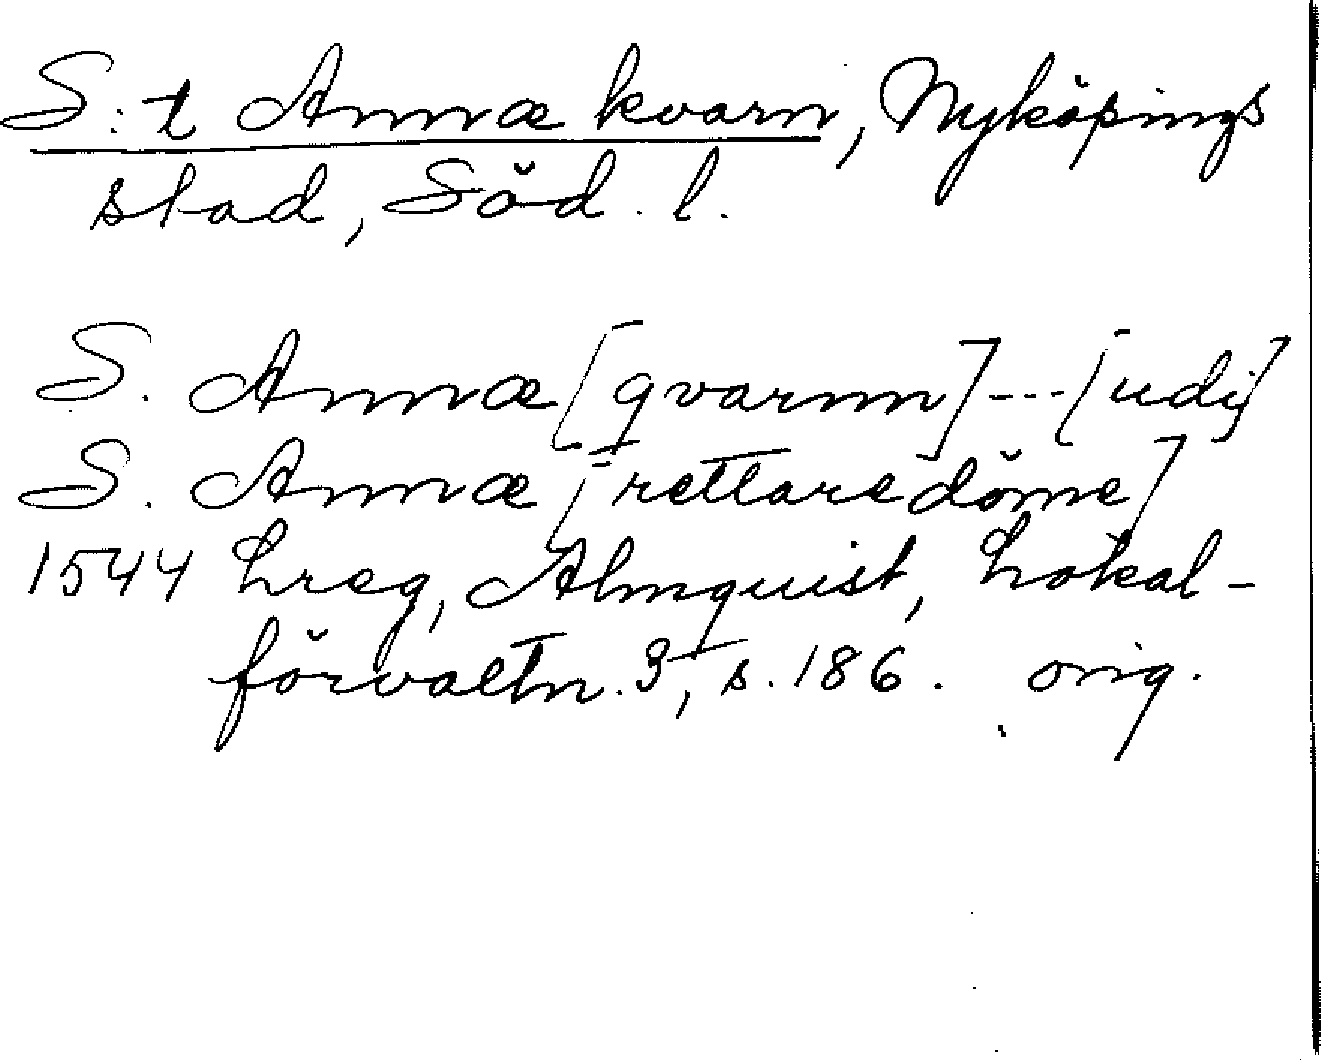 S:t Annæ kvarn, Nyköpings
stad, Söd. l.
S. Annæ [qvarnn] --- [udij]
S. Annæ [rettaredöme]
1544 Lreg, Almquist, Lokal-
förvaltn. 3, s. 186. orig.